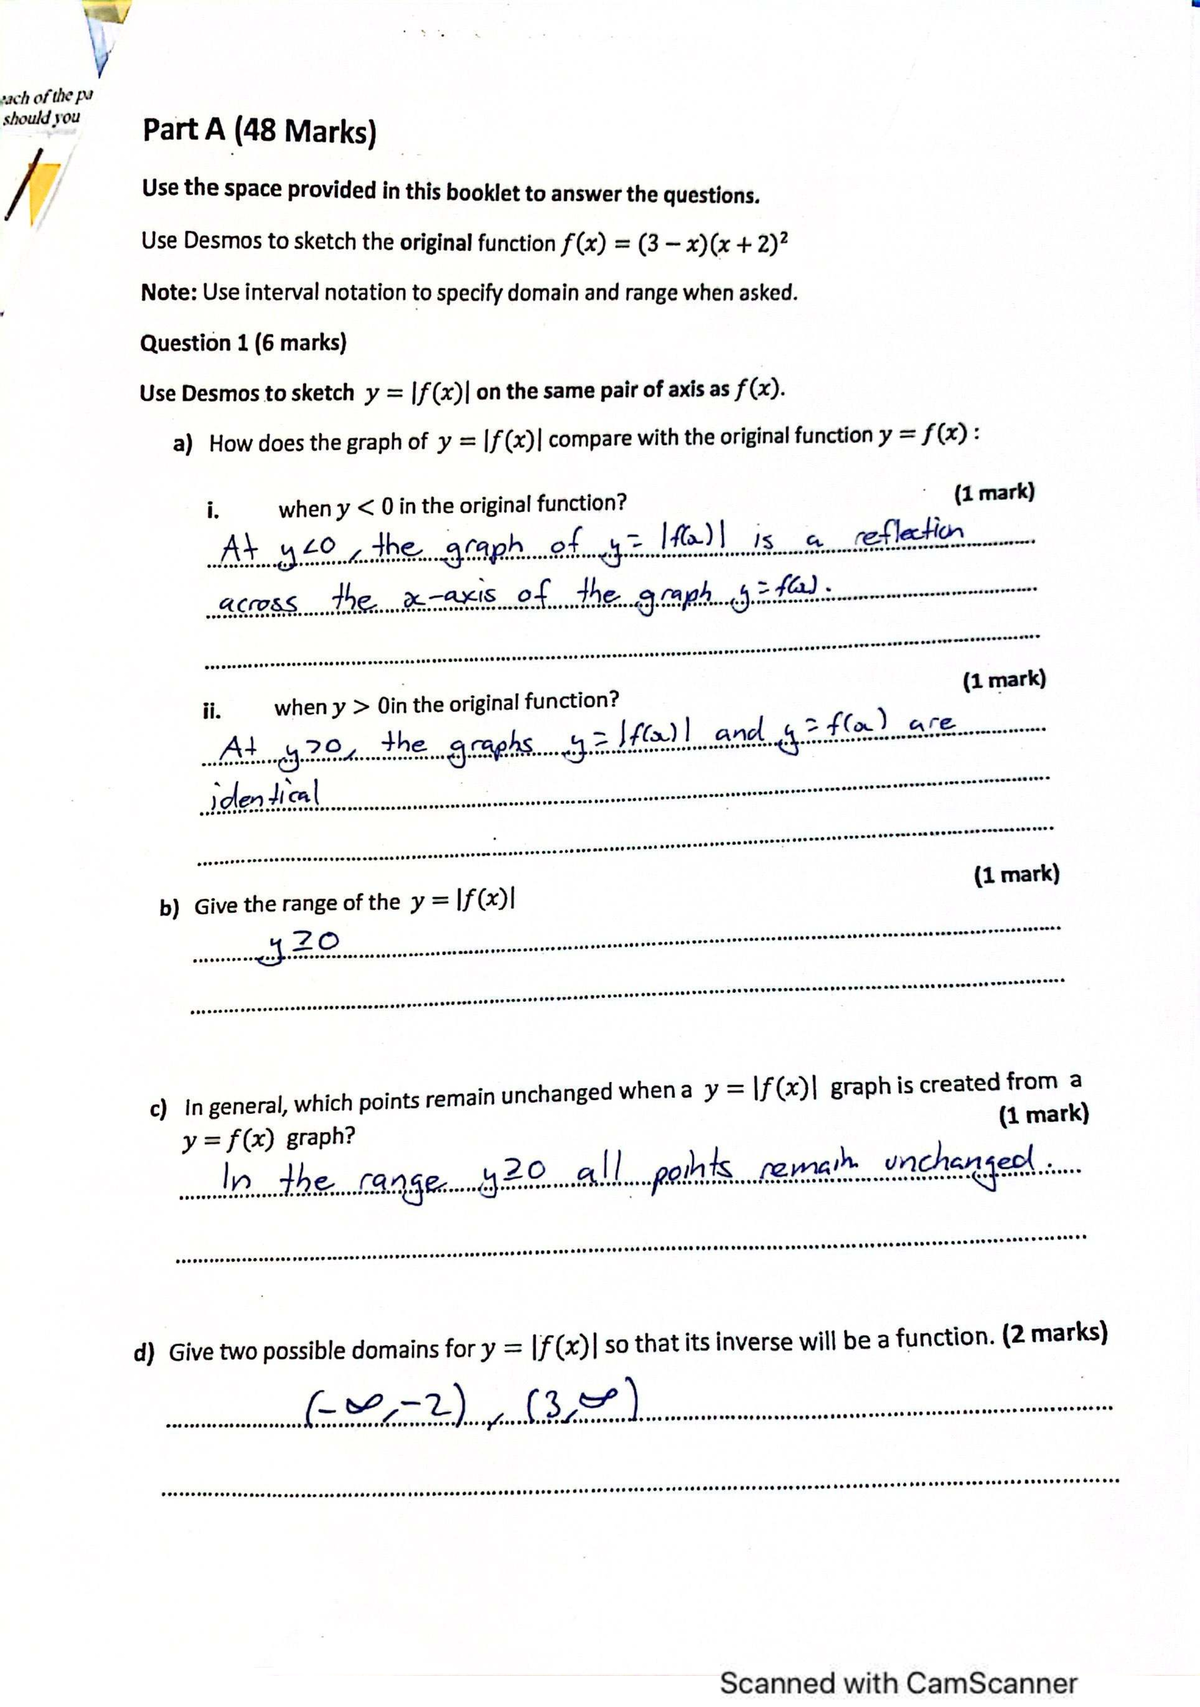 each of the pa
should you
Part A (48 Marks)
Use the space provided in this booklet to answer the questions.
Use Desmos to sketch the original function f(x) = (3 – x)(x + 2)²
Note: Use interval notation to specify domain and range when asked.
Question 1 (6 marks)
Use Desmos to sketch y = |f(x)| on the same pair of axis as f(x).
a) How does the graph of y = |f(x)| compare with the original function y = f(x) :
i. when y < 0 in the original function? (1 mark)
At y<0, the graph of y = |f(x)| is a reflection
across the x-axis of the graph y = f(x).
ii. when y > 0in the original function? (1 mark)
At y>0, the graphs y = |f(x)| and y = f(x) are
identical
b) Give the range of the y = |f(x)| (1 mark)
y≥0
c) In general, which points remain unchanged when a y = |f(x)| graph is created from a
y = f(x) graph? (1 mark)
In the range y≥0 all points remain unchanged.
d) Give two possible domains for y = |f(x)| so that its inverse will be a function. (2 marks)
(-∞,-2), (3,∞)
Scanned with CamScanner